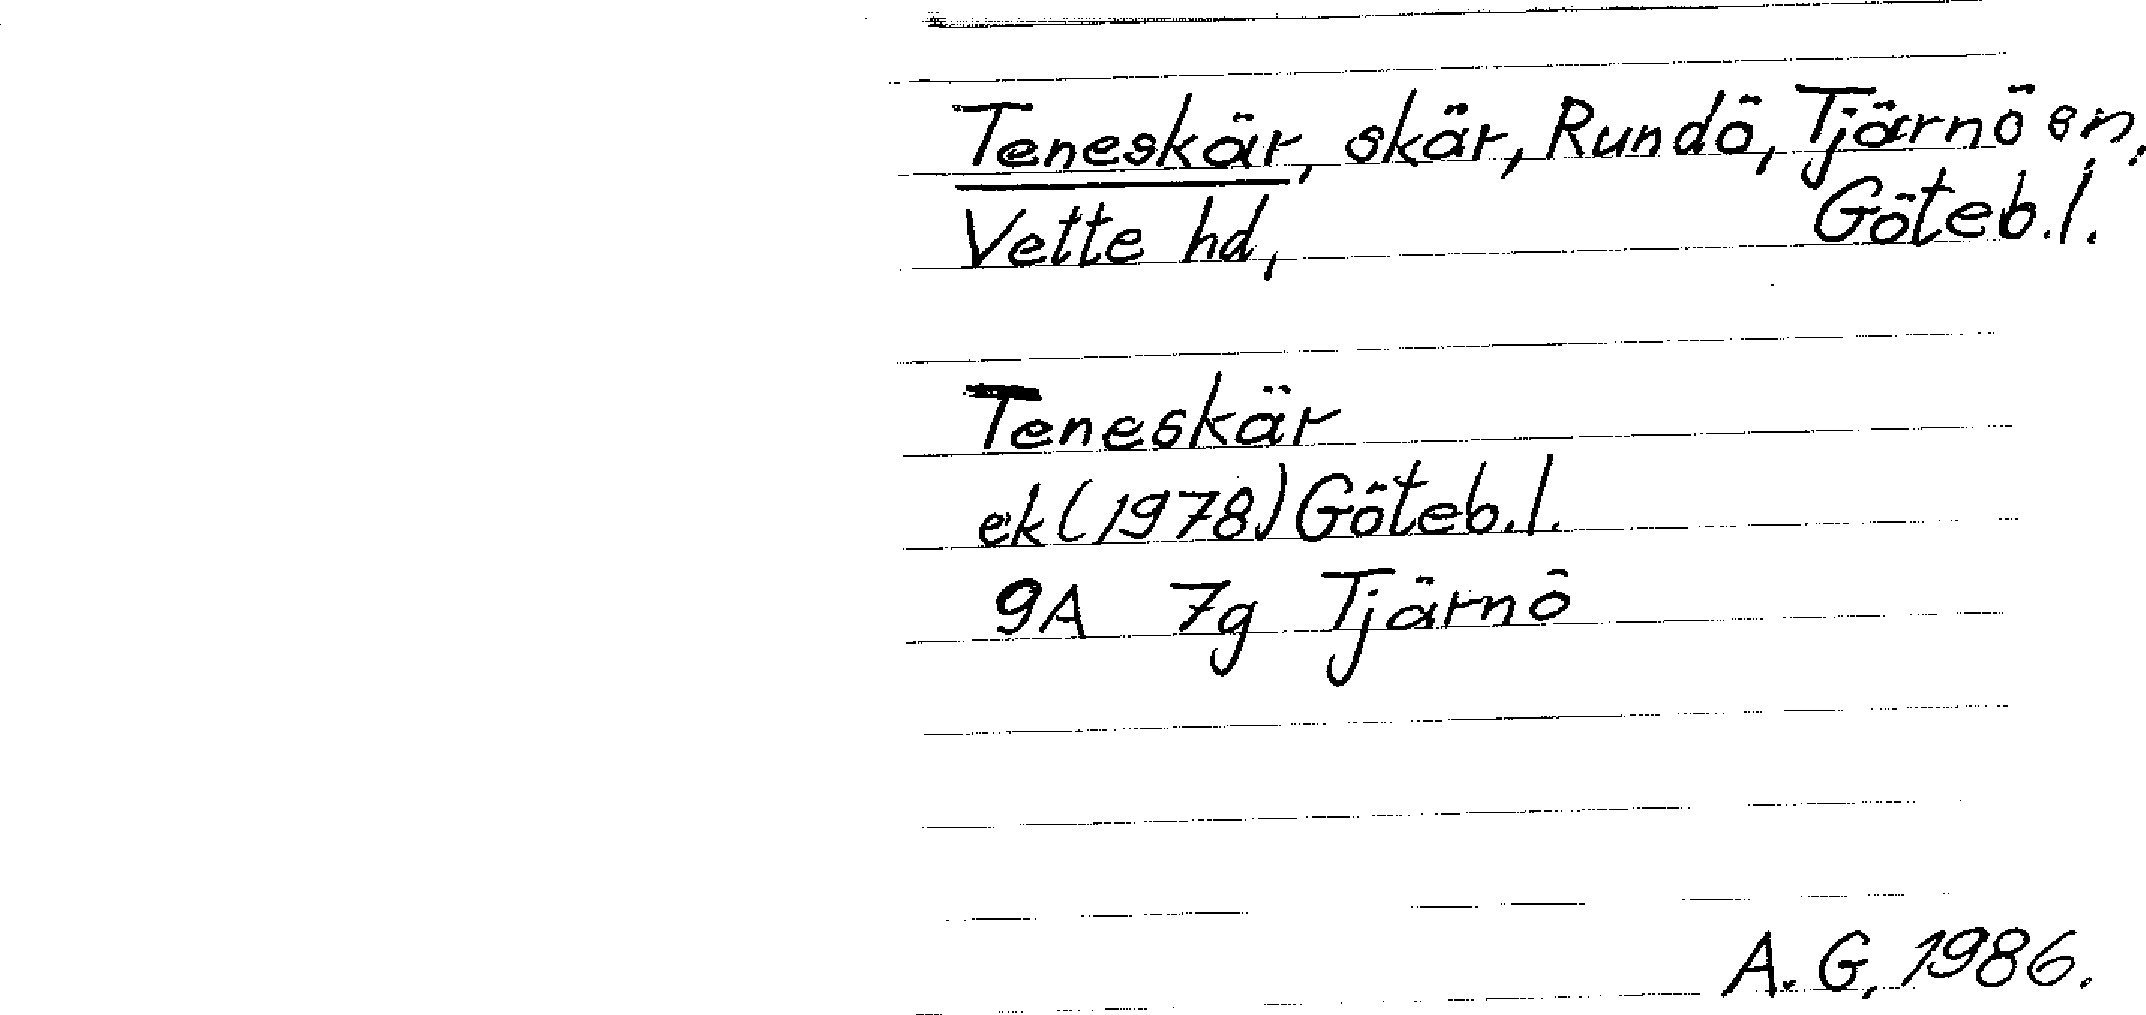 Teneskär, skär, Rundö, Tjärnö sn,
Vette hd, Göteb.l.
Teneskär
ek (1978) Göteb.l.
9A 7g Tjärnö
A. G, 1986.